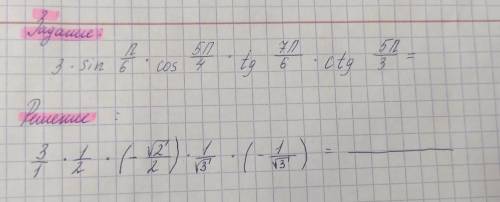 Задание:
3 · sin П/6 · cos 5П/4 · tg 7П/6 · ctg 5П/3 =
Решение :
3/1 · 1/2 · (- √2/2) · 1/√3 · (- 1/√3) = ______